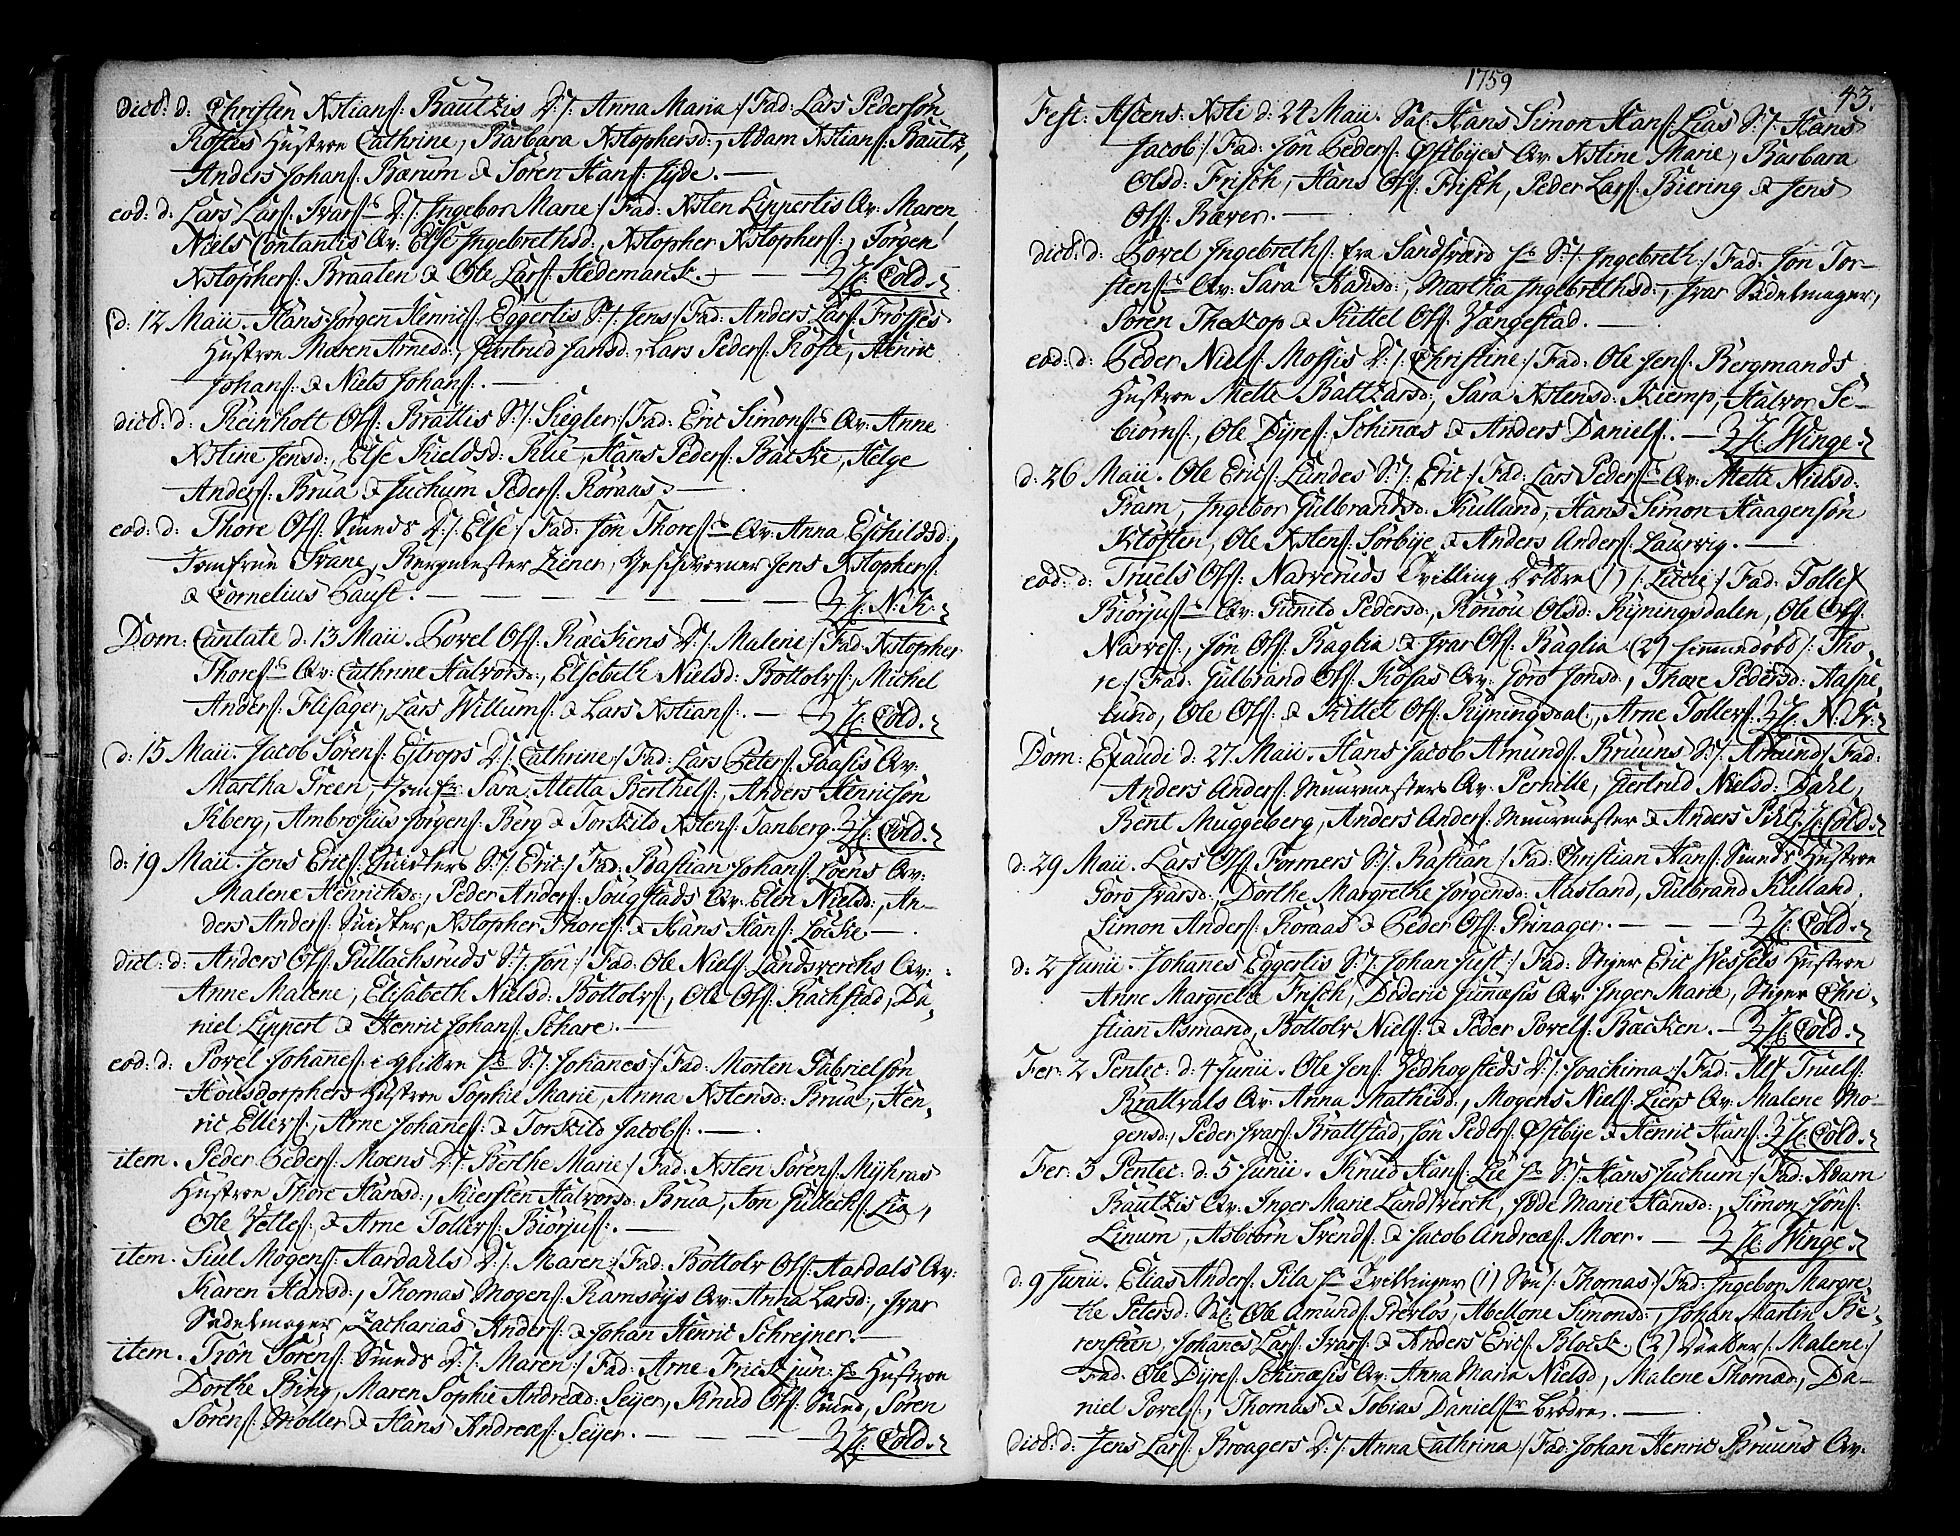 dict: d: Christen Xstians: Bautzis D:/: Anna Maria :/ Fad: Lars Pedersøn
Roses Hustroe Cathrine, Barbara Xstophersd:, Adam Xstians: Bautz,
Anders Johans: Bærum & Søren Hans: Jyde. —
eod: d: Lars Lars: Ivars: D:/: Ingebor Marie :/ Fad: Xsten Lippertis Qv: Maren,
Niels Contantis Qv: Else Ingebrethsd:, Xstopher Xstophers:, Jørgen
Xstophers: Braaten & Ole Lars: Hedemark. — H: Cold.
d: 12 Maii. Hans Jørgen Henrics: Eggertis S:/: Jens :/ Fad: Anders Lars: Frøsses
Hustroe Maren Arnesd:, Giertrud Jansd:, Lars Peders: Rose, Henric
Johans: & Niels Johans: —
dict: d: Reinholt Ols: Brattis S:/: Siegler :/ Fad: Eric Simons: Qv: Anne
Xstine Jensd:, Else Kieldsd: Rue, Hans Peders: Backe, Helge
Anders: Brua & Juchum Peders: Roraas. —
eod: d: Thore Ols: Smeds D:/: Else :/ Fad: Jôn Thores: Qv: Anna Eschildsd:,
Jomfrue Svane, Bergmester Ziener, Geschworner Jens Xstophers:
& Cornelius Paust. — — — H: N. K:
Dom: Cantate d: 13 Maii. Povel Ols: Backens D:/: Malene :/ Fad: Xstopher
Thores: Qv: Cathrine Halvorsd:, Elsebeth Nielsd: Bottolvs:, Michel
Anders: Flisager, Lars Willums: & Lars Xstians: — H: Cold.
d: 15 Maii. Jacob Sørens: Estrops D:/: Cathrine :/ Fad: Lars Peters: Paasis Qv:
Martha Treen, Jomfr: Sara Metta Berthels:, Anders Henricsøn
Kberg, Ambrosius Jørgens: Berg & Torkild Xstens: Tanberg. H: Cold.
d: 19 Maii. Jens Erics: S:/: Eric :/ Fad: Bastian Johans: Løens Qv:
Malene Henrichsd:, Peder Anders: Sougstads Qv: Elen Nielsd:, An-
ders Anders:, Xstopher Thores: & Hans Hans: Locke —
dict: d: Anders Ols: Gullachsruds S:/: Jôn :/ Fad: Ole Niels: Landsverchs Qv:
Anne Malene, Elisabeth Nielsd: Bottolvs:, Ole Ols: Rachstad, Da-
niel Lippert & Henric Johans: Schare. —
eod: d: Povel Johannes: S:/: Johanes :/ Fad: Morten Gabrielsøn
Housdorphers Hustroe Sophie Marie, Anna Xstensd: Brua, Hen-
ric Ellers:, Arne Johanes: & Torkild Jacobs: —
item. Peder Peders: Moens D:/: Berthe Marie :/ Fad: Xsten Sørens: Myhras
Hustroe Thore Hansd:, Kiersten Halvorsd: Brua, Jon Gullechs: Lia,
Ole Vetles: & Arne Tollevs: Biørjus: —
item. Juul Mogens: Aardahls D:/: Maren :/ Fad: Bottolv Ols: Aardals Qv:
Karen Hansd:, Thomas Mogens: Ramsøys Qv: Anna Larsd:, Ivar
Sadelmager, Zacharias Anders: & Johan Henric Schrejner. —
item. Trôn Sørens: Smeds D:/: Maren :/ Fad: Arne Frick jun: Hustroe
Dorthe Bing, Maren Sophie Andread: Sejer, Knud Ols: Smed, Søren
Sørens: Møller & Hans Andreas: Seijer. — — — H: Cold.
1759
43.
Fest: Ascens: Xsti d: 24 Maii. Sal: Hans Simon Hans: Lias S:/: Hans
Jacob :/ Fad: Jôn Peders: Østbyes Qv: Xstine Marie, Barbara
Olsd: Frisch, Hans Ols: Frisch, Peder Lars: Biering & Jens
Ols: Bæver. —
dict: d: Povel Ingebreths: fra Sandsværd S:/: Ingebreth :/ Fad: Jôn Tor-
stens: Qv: Sara Hansd:, Martha Ingebrethsd:, Ivar Sadelmager,
Søren Theskop & Kittel Ols: Vængestad. —
eod: d: Peder Niels: Mossis D:/: Christine :/ Fad: Ole Jens: Bergmands
Hustroe Mette Baltzarsd:, Sara Xstensd: Kiemp, Halvor Se-
biørns:, Ole Dyres: Schinæs & Anders Daniels: — H: Winge.
d: 26 Maii. Ole Erics: Lundes S:/: Eric :/ Fad: Lars Peders: Qv: Mette Nielsd:
Ram, Ingebor Gulbrandsd: Kulland, Hans Simon Haagensøn
Kloften, Ole Xstens: Sørbye & Anders Anders: Laurvig. —
eod: d: Truels Ols: Narveruds Tvilling Døttre (1) /: Lucie :/ Fad: Tollef
Biørjus: Qv: Gunild Pedersd:, Rônou Olsd: Ryningsdalen, Ole Ols:
Narves:, Jôn Ols: Baglia & Ivar Ols: Baglia (2) hiemmedøbt /: Tho-
re :/ Fad: Gulbrand Ols: Kosas Qv: Goro Jonsd:, Thore Pedersd: Haspe-
lund, Ole Ols: & Kittel Ols: Ryningsdal, Arne Tollevs: H: N. K:
Dom: Exaudi d: 27 Maii. Hans Jacob Amunds: Bruuns S:/: Amund :/ Fad:
Anders Anders: Muurmesters Qv: Pernille, Giertrud Nielsd: Dahl,
Bent Muggeberg, Anders Anders: Muurmester & Anders Pihl. H: Cold.
d: 29 Maii. Lars Ols: Formers S:/: Bastian :/ Fad: Christian Hans: Smeds Hustroe
Goro Ivarsd:, Dorthe Margrethe Jørgensd: Aasland, Gulbrand Kulland,
Simon Anders: Roraas & Peder Ols: Prinager. — — H: Cold.
d: 2 Junii. Johanes Eggertis S:/: Johan Just :/ Fad: Stiger Eric Wessels Hustroe
Anne Margrete Frisch, Dideric Junæsis Qv: Inger Marie, Stiger Chri-
stian Asmand, Bottolv Niels: & Peder Povels: Backen. — H: Cold.
Fer: 2 Pentec: d: 4 Junii. Ole Jens: Jedhogsteds D:/: Joachima :/ Fad: Alf Truels:
Brattvals Qv: Anna Mathisd:, Mogens Niels: Liers Qv: Malene Mo-
gensd:, Peder Ivars: Brattstad, Jôn Peders: Østbye & Henric Hans: H: Cold.
Fer: 3 Pentec: d: 5 Junii. Knud Hans: Lie S:/: Hans Juchum :/ Fad: Adam
Bautzis Qv: Inger Marie Landsverch, Jøde Marie Hansd:, Simon Jôns:
Linum, Asbiørn Svends: & Jacob Andreas: Moer. — H: Winge.
d: 9 Junii. Elias Anders: Pila Tvillinger (1) Søn /: Thomas :/ Fad: Ingebor Margre-
the Petersd: Sal: Ole Amunds: Prerløs, Abellone Simonsd:, Johan Martin Be-
renstein, Johanes Lars: Ivars: & Anders Erics: Block. (2) Datter /: Malene :/
Fad: Ole Dyres: Schinæsis Qv: Anna Maria Nielsd, Malene Thomæd:, Da-
niel Povels:, Thomas & Tobias Daniels: brødre. —
dict: d: Jens Lars: Broagers D:/: Anna Cathrina :/ Fad: Johan Henric Bruuns Qv: